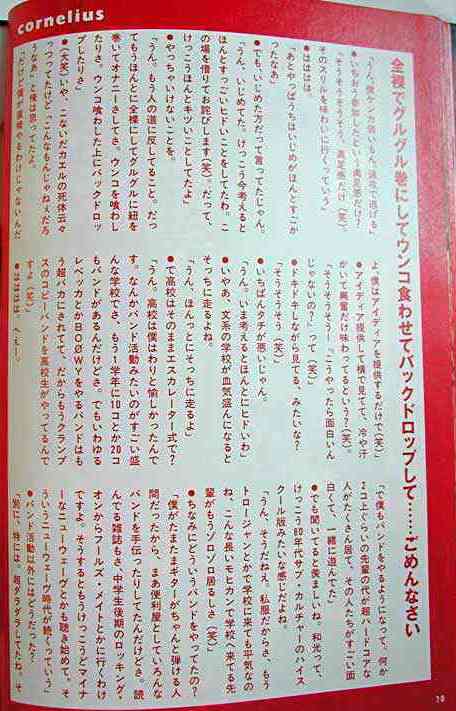 cornelius
全裸でグルグル巻にしてウンコ食わせてバックドロップして……ごめんなさい
「うん。僕ケンカ弱いもん。速攻で逃げる」
●いちおう参加したという満足感だけ?
「そうそうそうそう。高笑感だけ(笑)。
そのスリルを味わいに行くっていう」
●はははは。
「あとやっぱうちはいじめがほんとすごか
ったなあ」
●でも、いじめた方だって言ってたじゃん。
「うん。いじめてた。けっこう今考えると
ほんとすっごいヒドいことをしてたわ。こ
の場を借りてお詫びします(笑)。だって、
けっこうほんとキツいことしてたよ」
●やっちゃいけないことを。
「うん。もう人の道に反してること。だっ
てもうほんとに全裸にしてグルグルに紐を
巻いてオナニーさしてさ。ウンコを喰わし
たりさ。ウンコ喰わした上にバックドロッ
プしたりさ」
●(大笑)いや、こないだカエルの死体云々
っつってたけど「こんなもんじゃねぇだろ
うなぁ」と俺は思ってたよ。
「だけど僕が直接やるわけじゃないんだ
よ、僕はアイディアを提供するだけで(笑)」
●アイディア提供して横で見てて、冷や汗
かいて興奮だけ味わってるという?(笑)。
「そうそうそう!『こうやったら面白いん
じゃないの?』って(笑)」
●ドキドキしながら見てる、みたいな?
「そうそうそう(笑)」
●いちばんタチが悪いじゃん。
「うん。いま考えるとほんとにヒドいわ」
●いやあ、文系の学校が血気盛んになると
そっちに走るよね。
「うん、ほんっとにそっちに走るよ」
●で高校はそのままエスカレーター式で?
「うん。高校は僕はわりと愉しかったんで
す。なんかバンド活動みたいのがすごい盛
んな学校でさ、もう1学年に10コとか20コ
もバンドがあるんだけどさ。でもいわゆる
レベッカとかBOØWYをやるバンドはも
う超バカにされてて、だからもうクランプ
スのコピーバンドを高校生がやってるんで
すよ(笑)」
●はははは、へぇー。
「で僕もバンドをやるようになって、何か
2コ上ぐらいの先輩の代が超ハードコアな
人がたくさん居て、その人たちがすごい面
白くて、一緒に遊んでた」
●でも聞いてると羨ましいね、和光って、
けっこう60年代サブ・カルチャーのハイス
クール版みたいな感じだよね。
「うん、そうだねえ、私服だからさ、もう
トロージャンとかで学校に来ても平気なの
ね。こんな長いモヒカンで学校へ来てる先
輩がもうゾロゾロ居るしさ(笑)」
●ちなみにどういうバンドをやってたの?
「僕がたまたまギターがちゃんと弾ける人
間だったから、まあ便利屋としていろんな
バンドを手伝ったりしてたんだけどさ。読
んでる雑誌もさ、中学生後期のロッキング・
オンからフールズ・メイトとかに行くわけ
ですよ。そうするともうけっこうどマイナ
ーなニューウェーヴとかも聴き始めて、そ
ういうニューウェーヴ時代が続くっていう」
●バンド活動以外にはどうだった?
「別に、特には。超ダラダラしてたね。そ